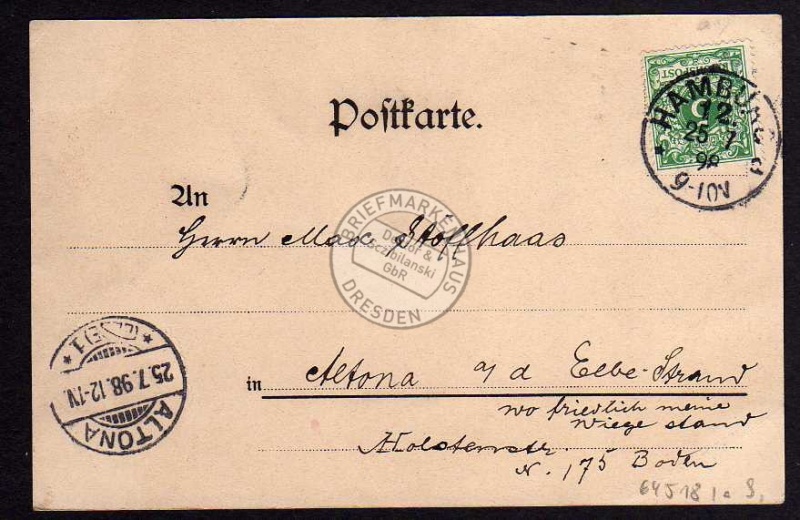 Postkarte.
REICHSPOST
5
HAMBURG
12.
25 7
98
9-10V
An
Herrn Max Stoffhaas
BRIEFMARKENHAUS
&
GbR
DRESDEN
in Altona a/d Elbe-Strand
wo friedlich meine
Wiege stand
Holstenstr.
N. 175 Boden
ALTONA
25.7.98.12-1N.
(ELBE) 1
64518